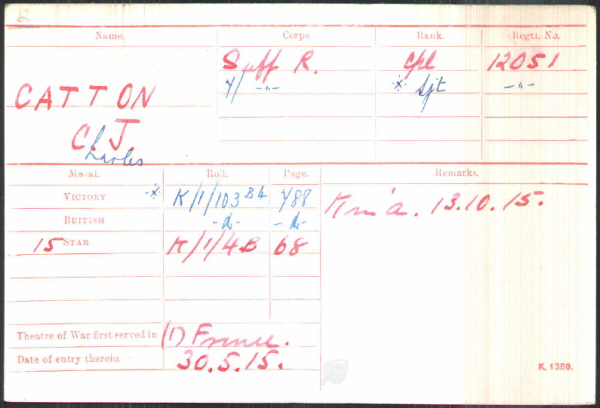 Name. Corps. Rank. Regtl. No.
Suff R. Cpl 12051
7/ -"- * Sjt -"-
CATTON
C. J.
Charles
Medal. Roll. Page. Remarks.
VICTORY * K/1/103 B4 488
BRITISH -do- -do-
K in a. 13.10.15.
15 STAR K/1/4B 68
Theatre of War first served in (1) France.
Date of entry therein 30.5.15.
K. 1380.